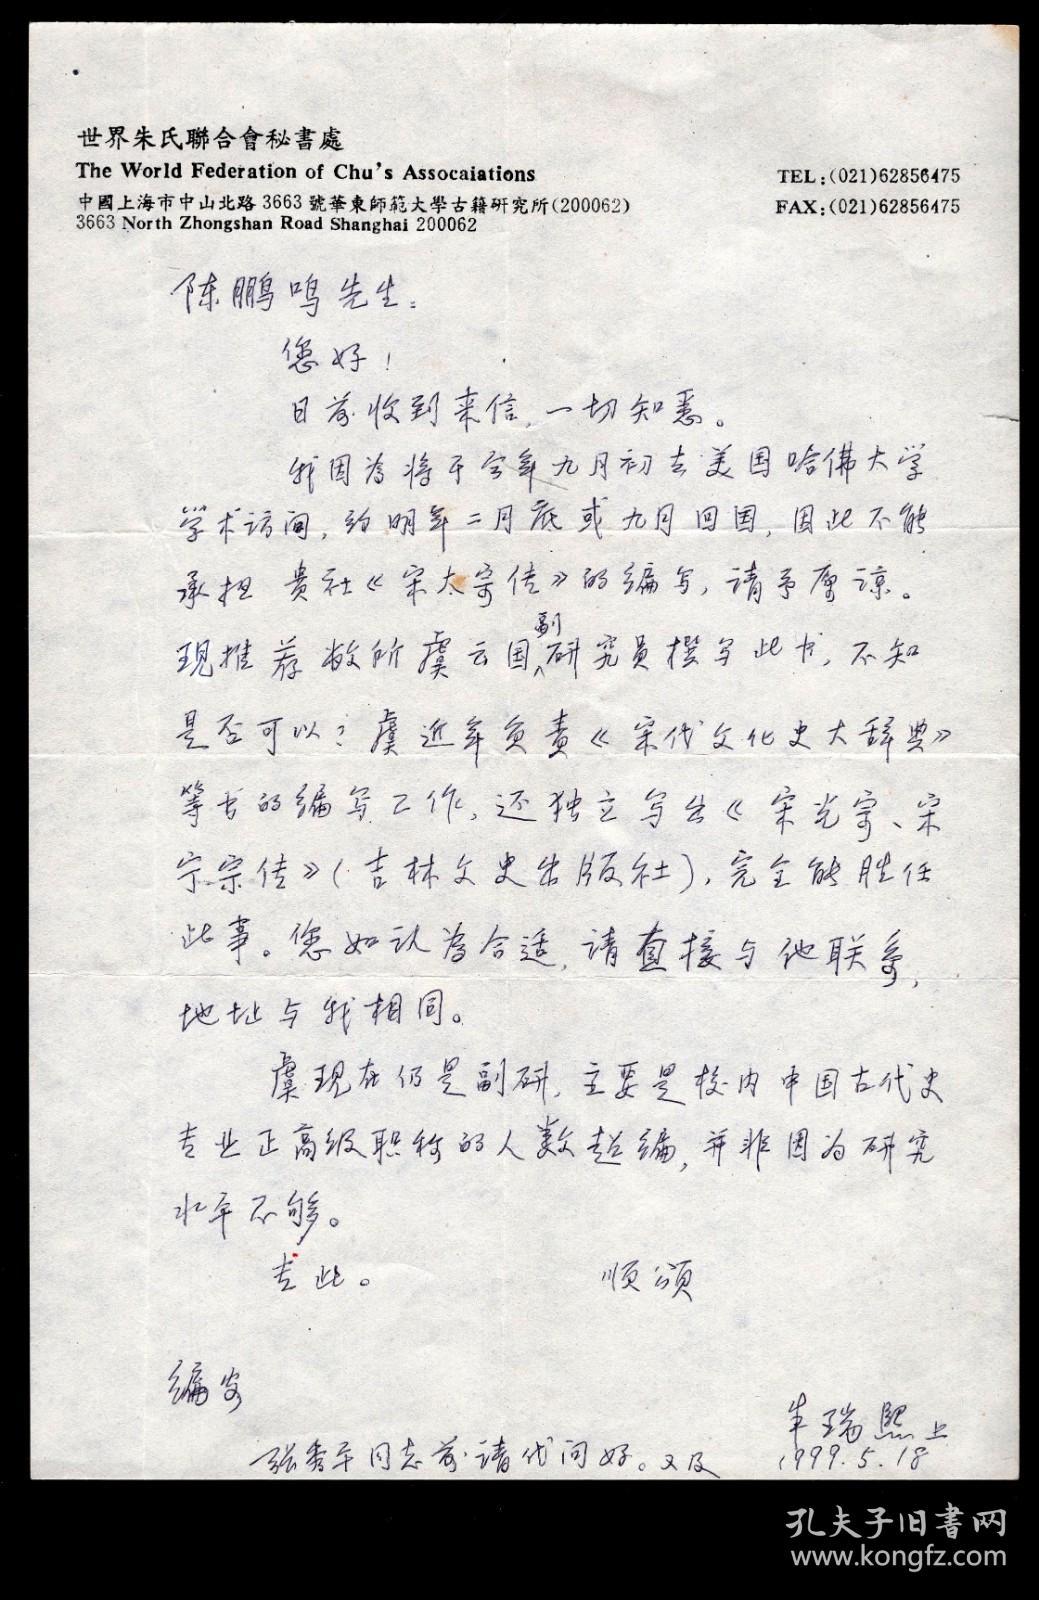 世界朱氏聯合會秘書處
The World Federation of Chu's Assocaiations
TEL:(021)62856475
中國上海市中山北路3663號華東師範大學古籍研究所(200062)
FAX:(021)62856475
3663 North Zhongshan Road Shanghai 200062
陈鹏鸣先生：
您好！
日前收到来信，一切知悉。
我因为将于今年九月初去美国哈佛大学
学术访问，约明年二月底或九月回国，因此不能
承担贵社《宋太宗传》的编写，请予原谅。
现推荐敝所虞云国副研究员撰写此书，不知
是否可以？虞近年负责《宋代文化史大辞典》
等书的编写工作，还独立写出《宋光宗、宋
宁宗传》(吉林文史出版社)，完全能胜任
此事。您如认为合适，请直接与他联系，
地址与我相同。
虞现在仍是副研，主要是校内中国古代史
专业正高级职称的人数超编，并非因为研究
水平不够。
专此。 顺颂
编安
朱瑞熙上
张秀平同志前请代问好。又及
1999.5.18
孔夫子旧书网
www.kongfz.com